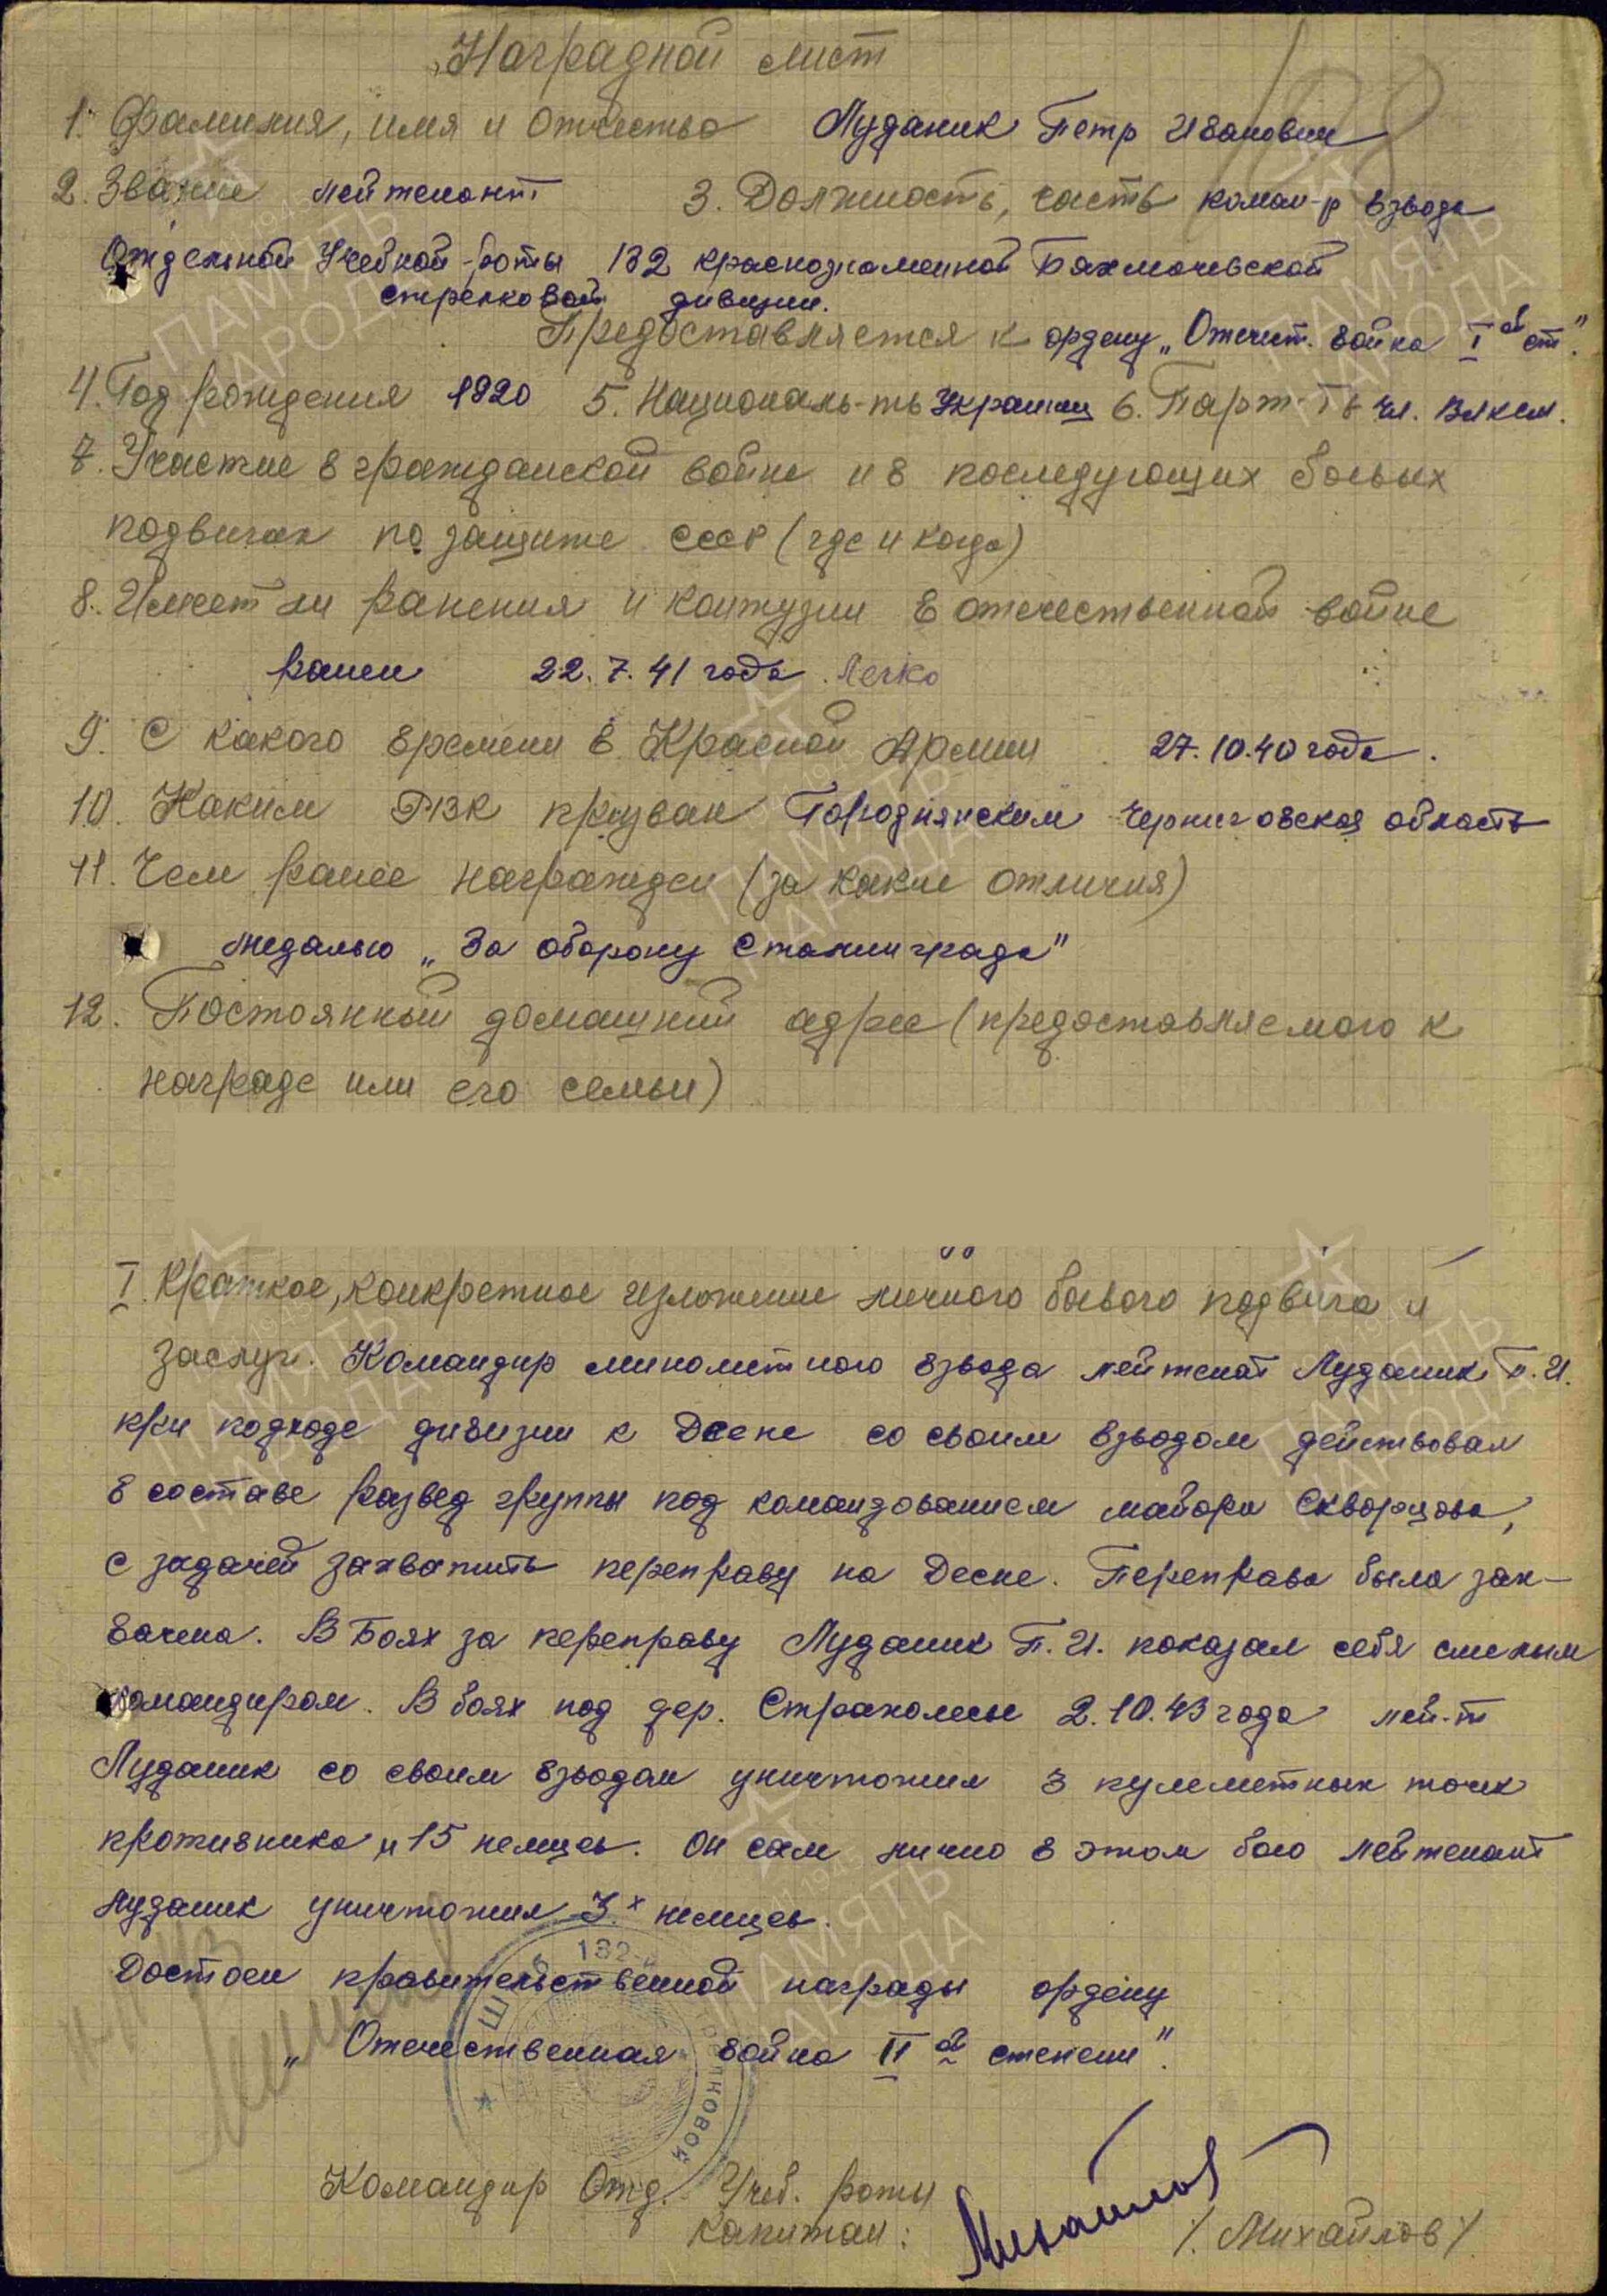 Наградной лист
1. Фамилия, имя и отчество Луданик Петр Иванович
2. Звание лейтенант 3. Должность, часть коман-р взвода
Отдельной Учебной роты 132 краснознаменной Бахмачевской
стрелковой дивизии.
Предоставляется к ордену „Отечест. война I ой ст."
4. Год рождения 1920 5. Националь-ть Украинец 6. Парт-ть чл. ВЛКСМ.
7. Участие в гражданской войне и в последующих боевых
подвигах по защите СССР (где и когда)
8. Имеет ли ранения и контузии в отечественной войне
ранен 22.7.41 года легко
9. С какого времени в Красной Армии 27.10.40 года.
10. Каким РВК призван Городнянским Черниговская область
11. Чем ранее награжден (за какие отличия)
медалью „За оборону Сталинграда"
12. Постоянный домашний адрес (предоставляемого к
награде или его семьи)
I. Краткое, конкретное изложение личного боевого подвига и
заслуг. Командир минометного взвода лейтенат Луданик П.И.
при подходе дивизии к Десне со своим взводом действовал
в составе развед группы под командованием майора Скворцова,
с задачей захватить переправу на Десне. Переправа была зах-
вачена. В Боях за переправу Луданик П.И. показал себя смелым
командиром. В боях под дер. Страхолесье 2.10.43 года лей-т
Луданик со своим взводом уничтожил 3 пулеметных точек
противника и 15 немцев. Он сам лично в этом бою лейтенант
Луданик уничтожил 3х немцев.
Достоен правительственной награды ордену
„Отечественная война II ой степени".
132
Командир Отд. Учеб. роты
Капитан: Михайлов /Михайлов/
ПАМЯТЬ
НАРОДА